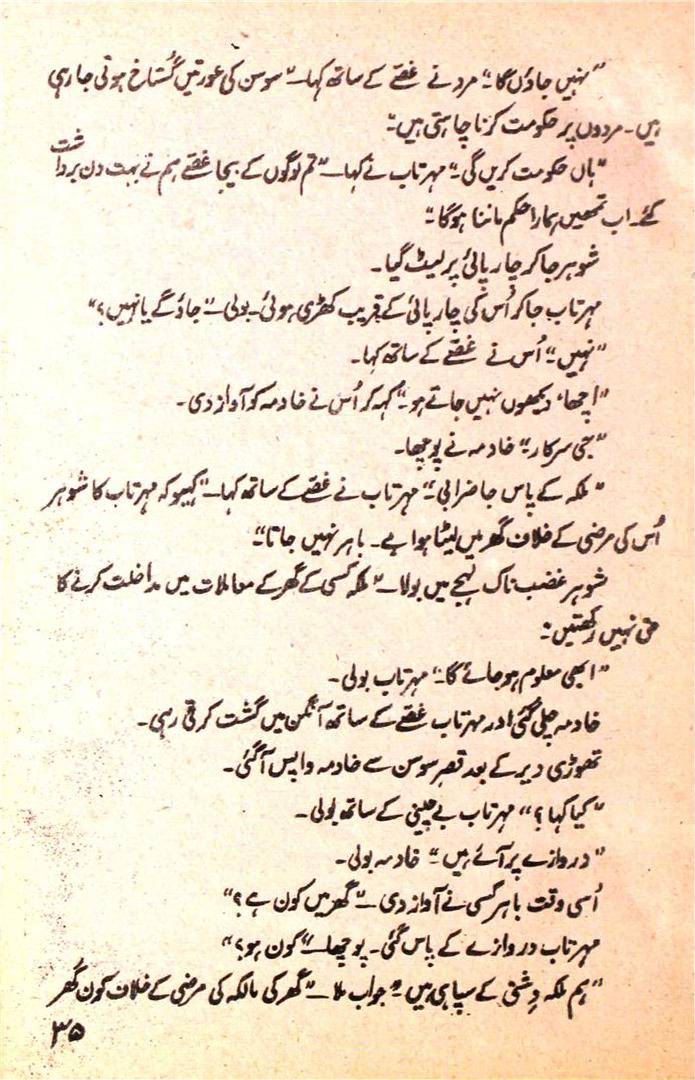 "نہیں جاؤں گا۔" مرد نے غصّے کے ساتھ کہا۔ "سوسن کی عورتیں گستاخ ہوتی جا رہی
ہیں۔ مردوں پر حکومت کرنا چاہتی ہیں۔"
"ہاں حکومت کریں گی۔" مہرتاب نے کہا۔ "تم لوگوں کے بیجا غصّے ہم نے بہت دن برداشت
کئے۔ اب تمھیں ہمارا حکم ماننا ہوگا۔"
شوہر جا کر چارپائی پر لیٹ گیا۔
مہرتاب جا کر اُس کی چارپائی کے قریب کھڑی ہوئی۔ بولی۔ "جاؤ گے یا نہیں؟"
"نہیں۔" اُس نے غصّے کے ساتھ کہا۔
"اچھا، دیکھوں نہیں جاتے ہو۔" کہہ کر اُس نے خادمہ کو آواز دی۔
"جی سرکار۔" خادمہ نے پوچھا۔
"ملکہ کے پاس جا ضرابی۔" مہرتاب نے غصّے کے ساتھ کہا۔ "کہیو کہ مہرتاب کا شوہر
اُس کی مرضی کے خلاف گھر میں لیٹا ہوا ہے۔ باہر نہیں جاتا۔"
شوہر غضب ناک لہجے میں بولا۔ "ملکہ کسی کے گھر کے معاملات میں مداخلت کرنے کا
حق نہیں رکھتیں۔"
"ابھی معلوم ہو جائے گا۔" مہرتاب بولی۔
خادمہ چلی گئی اور مہرتاب غصّے کے ساتھ آنگن میں گشت کرتی رہی۔
تھوڑی دیر کے بعد قصرِ سوسن سے خادمہ واپس آگئی۔
"کیا کہا؟" مہرتاب بے چینی کے ساتھ بولی۔
"دروازے پر آئے ہیں۔" خادمہ بولی۔
اُسی وقت باہر کسی نے آواز دی۔ "گھر میں کون ہے؟"
مہرتاب دروازے کے پاس گئی۔ پوچھا۔ "کون ہو؟"
"ہم ملکہ وِشنی کے سپاہی ہیں۔" جواب ملا۔ "گھر کی مالکہ کی مرضی کے خلاف کون گھر
۳۵